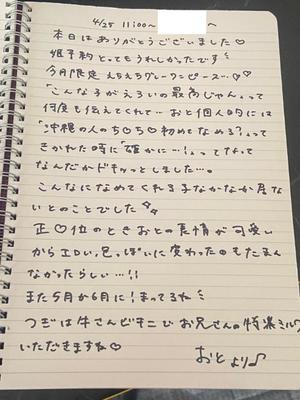 4/25 11:00〜 へ
本日はありがとうございました♡
姫予約とってもうれしかったです
今月限定 えちえちグレーワンピース…♡♡
「こんな子がえろいの最高じゃん」って
何度も伝えてくれて… おと個人的には
「沖縄の人のちOち♡初めてなめる?」って
きかれた時に「確かに…!」ってなって
なんだかドキッとしました…。
こんなになめてくれる子なかなか居な
いとのことでした
正♡位のときおとの表情が可愛い
からエロい、色っぽいに変わったのもたまん
なかったらしい…!!
また5月か6月に!まってるね
つぎは牛さんビキニでお兄さんの特濃ミルク
いただきますね♡
おとより♪